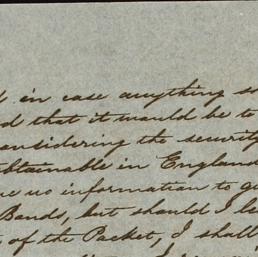 in case anything
d that it would be to
considering the security
obtainable in England
no information to
Bonds, but should I
of the Packet, I shall